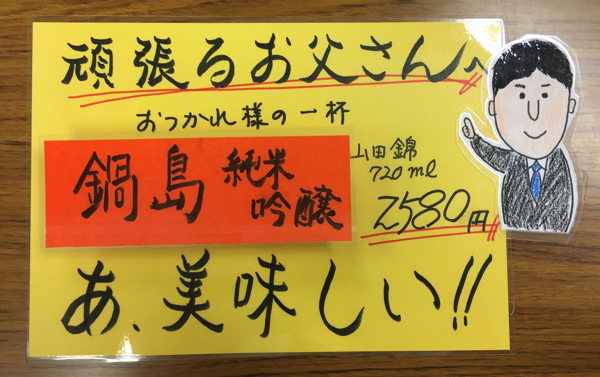 頑張るお父さんへ
おつかれ様の一杯
鍋島 純米吟醸
山田錦
720ml
2580円
あ、美味しい!!